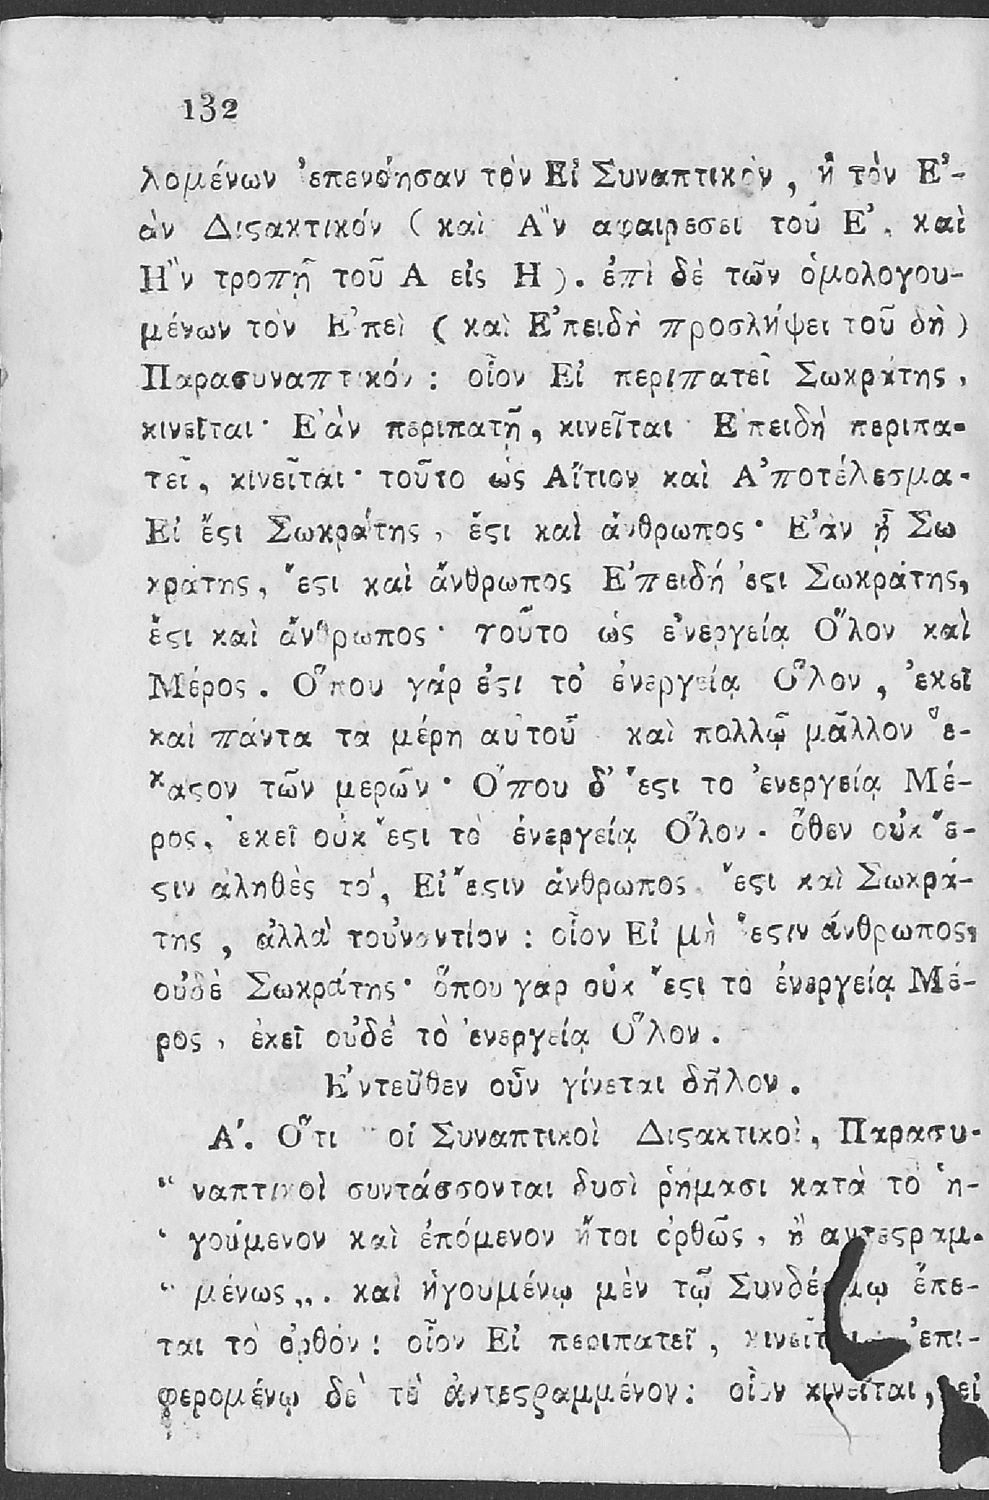 132
λομένων ἐπενόησαν τὸν Εἰ Συναπτικὸν, ἢ τὸν Ἐ-
ὰν Διϛακτικόν ( καὶ Ἂν αφαιρεσει τοῦ Ε΄. καὶ
Ἢν τροπῇ τοῦ Α εἰς Η ). ἐπὶ δὲ τῶν ὁμολογου-
μένων τὸν Ἐπεὶ ( καὶ Ἐπειδὴ προσλήψει τοῦ δὴ )
Παρασυναπτικόν : οἷον Εἰ περιπατεῖ Σωκράτης,
κινεῖται· Ἐὰν περιπατῇ, κινεῖται· Ἐπειδὴ περιπα-
τεῖ, κινεῖται· τοῦτο ὡς Αἴτιον καὶ Ἀποτέλεσμα·
Εἰ ἔϛι Σωκράτης, ἔϛι καὶ ἄνθρωπος· Ἐὰν ᾖ Σω
κράτης, ἔϛι καὶ ἄνθρωπος Ἐπειδή ἐϛι Σωκράτης,
ἔϛι καὶ ἄνθρωπος· τοῦτο ὡς ἐνεργείᾳ Ὅλον καὶ
Μέρος. Ὅπου γάρ ἐϛι τὸ ἐνεργείᾳ Ὅλον, ἐκεῖ
καὶ πάντα τα μέρη αὐτοῦ καὶ πολλῷ μᾶλλον ἕ-
καϛον τῶν μερῶν· Ὅπου δ' ἔϛι το ἐνεργείᾳ Μέ-
ρος, ἐκεῖ οὐκ ἔϛι τὸ ἐνεργείᾳ Ὅλον· ὅθεν οὐκ ἔ-
ϛιν ἀληθὲς τό, Εἰ ἔϛιν άνθρωπος, ἔϛι καὶ Σωκρά-
της, ἀλλὰ τοὐναντίον : οἷον Εἰ μὴ ἔϛιν άνθρωπος,
οὐδὲ Σωκράτης· ὅπου γαρ οὐκ ἔϛι το ἐνεργείᾳ Μέ-
ρος, ἐκεῖ οὐδὲ τὸ ἐνεργείᾳ Ὅλον.
Ἐντεῦθεν οὖν γίνεται δῆλον.
Α΄. Ὅτι " οἱ Συναπτικοὶ Διϛακτικοὶ, Παρασυ-
" ναπτικοὶ συντάσσονται δυσὶ ῥήμασι κατὰ τὸ ἡ-
" γούμενον καὶ ἑπόμενον ἤτοι ὀρθῶς, ἢ αντεϛραμ-
" μένως ,,. καὶ ἡγουμένῳ μὲν τῷ Συνδέσμῳ ἕπε-
ται τὸ ὀρθόν : οἷον Εἰ περιπατεῖ, κινεῖται ἐπι-
φερομένῳ δὲ τὸ ἀντεϛραμμένον : οἷον κινεῖται, εἰ